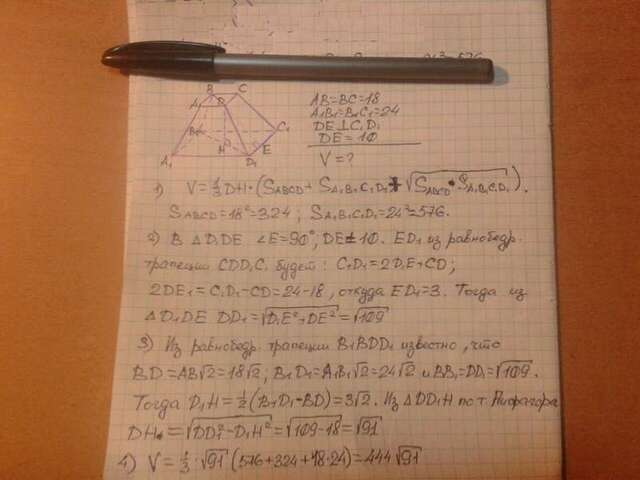 B C
A D
AB=BC=18
A₁B₁=B₁C₁=24
DE⊥C₁D₁
DE=10
V=?
B₁ C₁
A₁ H D₁ E
1) V=⅓DH·(S_ABCD+S_A₁B₁C₁D₁+√(S_ABCD·S_A₁B₁C₁D₁)).
S_ABCD=18²=324; S_A₁B₁C₁D₁=24²=576.
2) В ΔD₁DE ∠E=90°; DE=10. ED₁ из равнобедр.
трапеции CDD₁C₁ будет: C₁D₁=2D₁E+CD;
2DE₁=C₁D₁-CD=24-18, откуда ED₁=3. Тогда из
ΔD₁DE DD₁=√(D₁E²+DE²)=√109
3) Из равнобедр. трапеции B₁BDD₁ известно, что
BD=AB√2=18√2; B₁D₁=A₁B₁√2=24√2 и BB₁=DD₁=√109.
Тогда D₁H=½(B₁D₁-BD)=3√2. Из ΔDD₁H по т. Пифагора
DH=√(DD₁²-D₁H²)=√(109-18)=√91
4) V=⅓·√91(576+324+18·24)=444√91